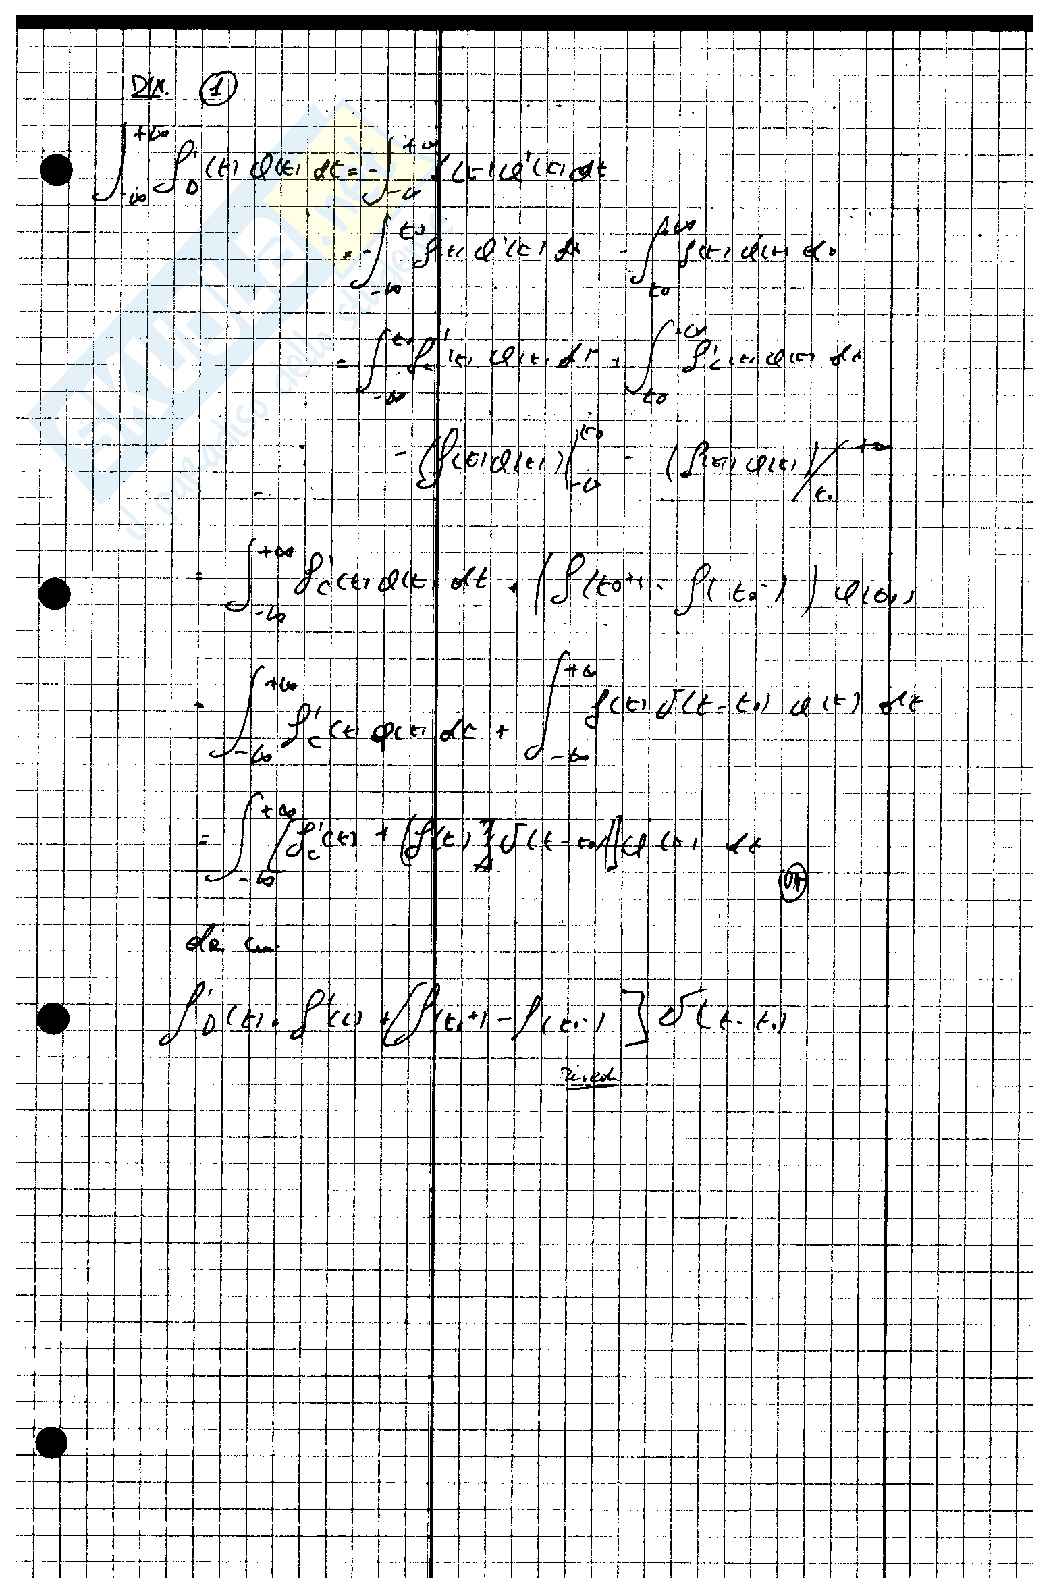 DIM. 1
∫_{-∞}^{+∞} f'_D(t) φ(t) dt = - ∫_{-∞}^{+∞} f(t) φ'(t) dt
= - ∫_{-∞}^{t0} f(t) φ'(t) dt - ∫_{t0}^{+∞} f(t) φ(t) dt
= ∫_{-∞}^{t0} f'_c(t) φ(t) dt + ∫_{t0}^{+∞} f'_c(t) φ(t) dt
- (f(t) φ(t)) |_{-∞}^{t0} - (f(t) φ(t)) /_{t0}^{+∞}
= ∫_{-∞}^{+∞} f'_c(t) φ(t) dt + (f(t0+) - f(t0-)) φ(t0)
= ∫_{-∞}^{+∞} f'_c(t) φ(t) dt + ∫_{-∞}^{+∞} f(t) δ(t-t0) φ(t) dt
= ∫_{-∞}^{+∞} [f'_c(t) + [f(t)] δ(t-t0)] φ(t) dt
da cui
f'_D(t) = f'(t) + [f(t0+) - f(t0-)] δ(t-t0)
SKUOLA.net